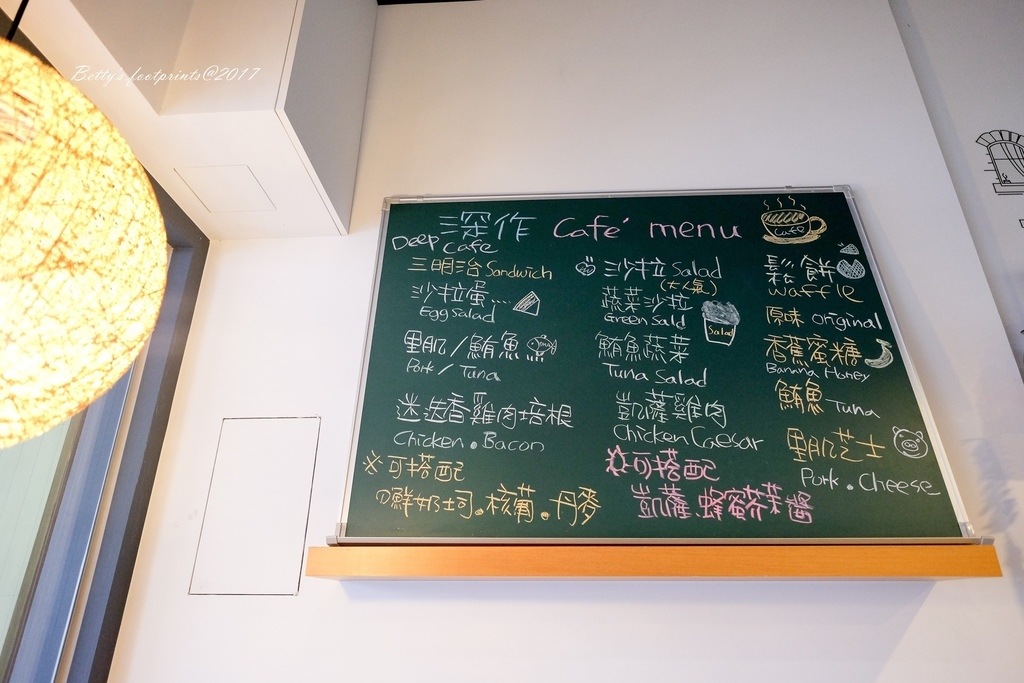 Betty's footprints@2017
深作 Café menu
Deep Cafe
三明治 Sandwich
沙拉蛋....
Egg Salad
里肌/鮪魚
Pork / Tuna
迷迭香雞肉培根
Chicken. Bacon
※可搭配
鮮奶吐司.核葡.丹麥
沙拉 Salad
(大人氣)
蔬菜沙拉
Green Sald
Salad
鮪魚蔬菜
Tuna Salad
凱薩雞肉
Chicken Caesar
可搭配
凱薩.蜂蜜芥茉醬
Cafe
鬆餅
Waffle
原味 original
香蕉蜜糖
Banana Honey
鮪魚 Tuna
里肌芝士
Pork. Cheese